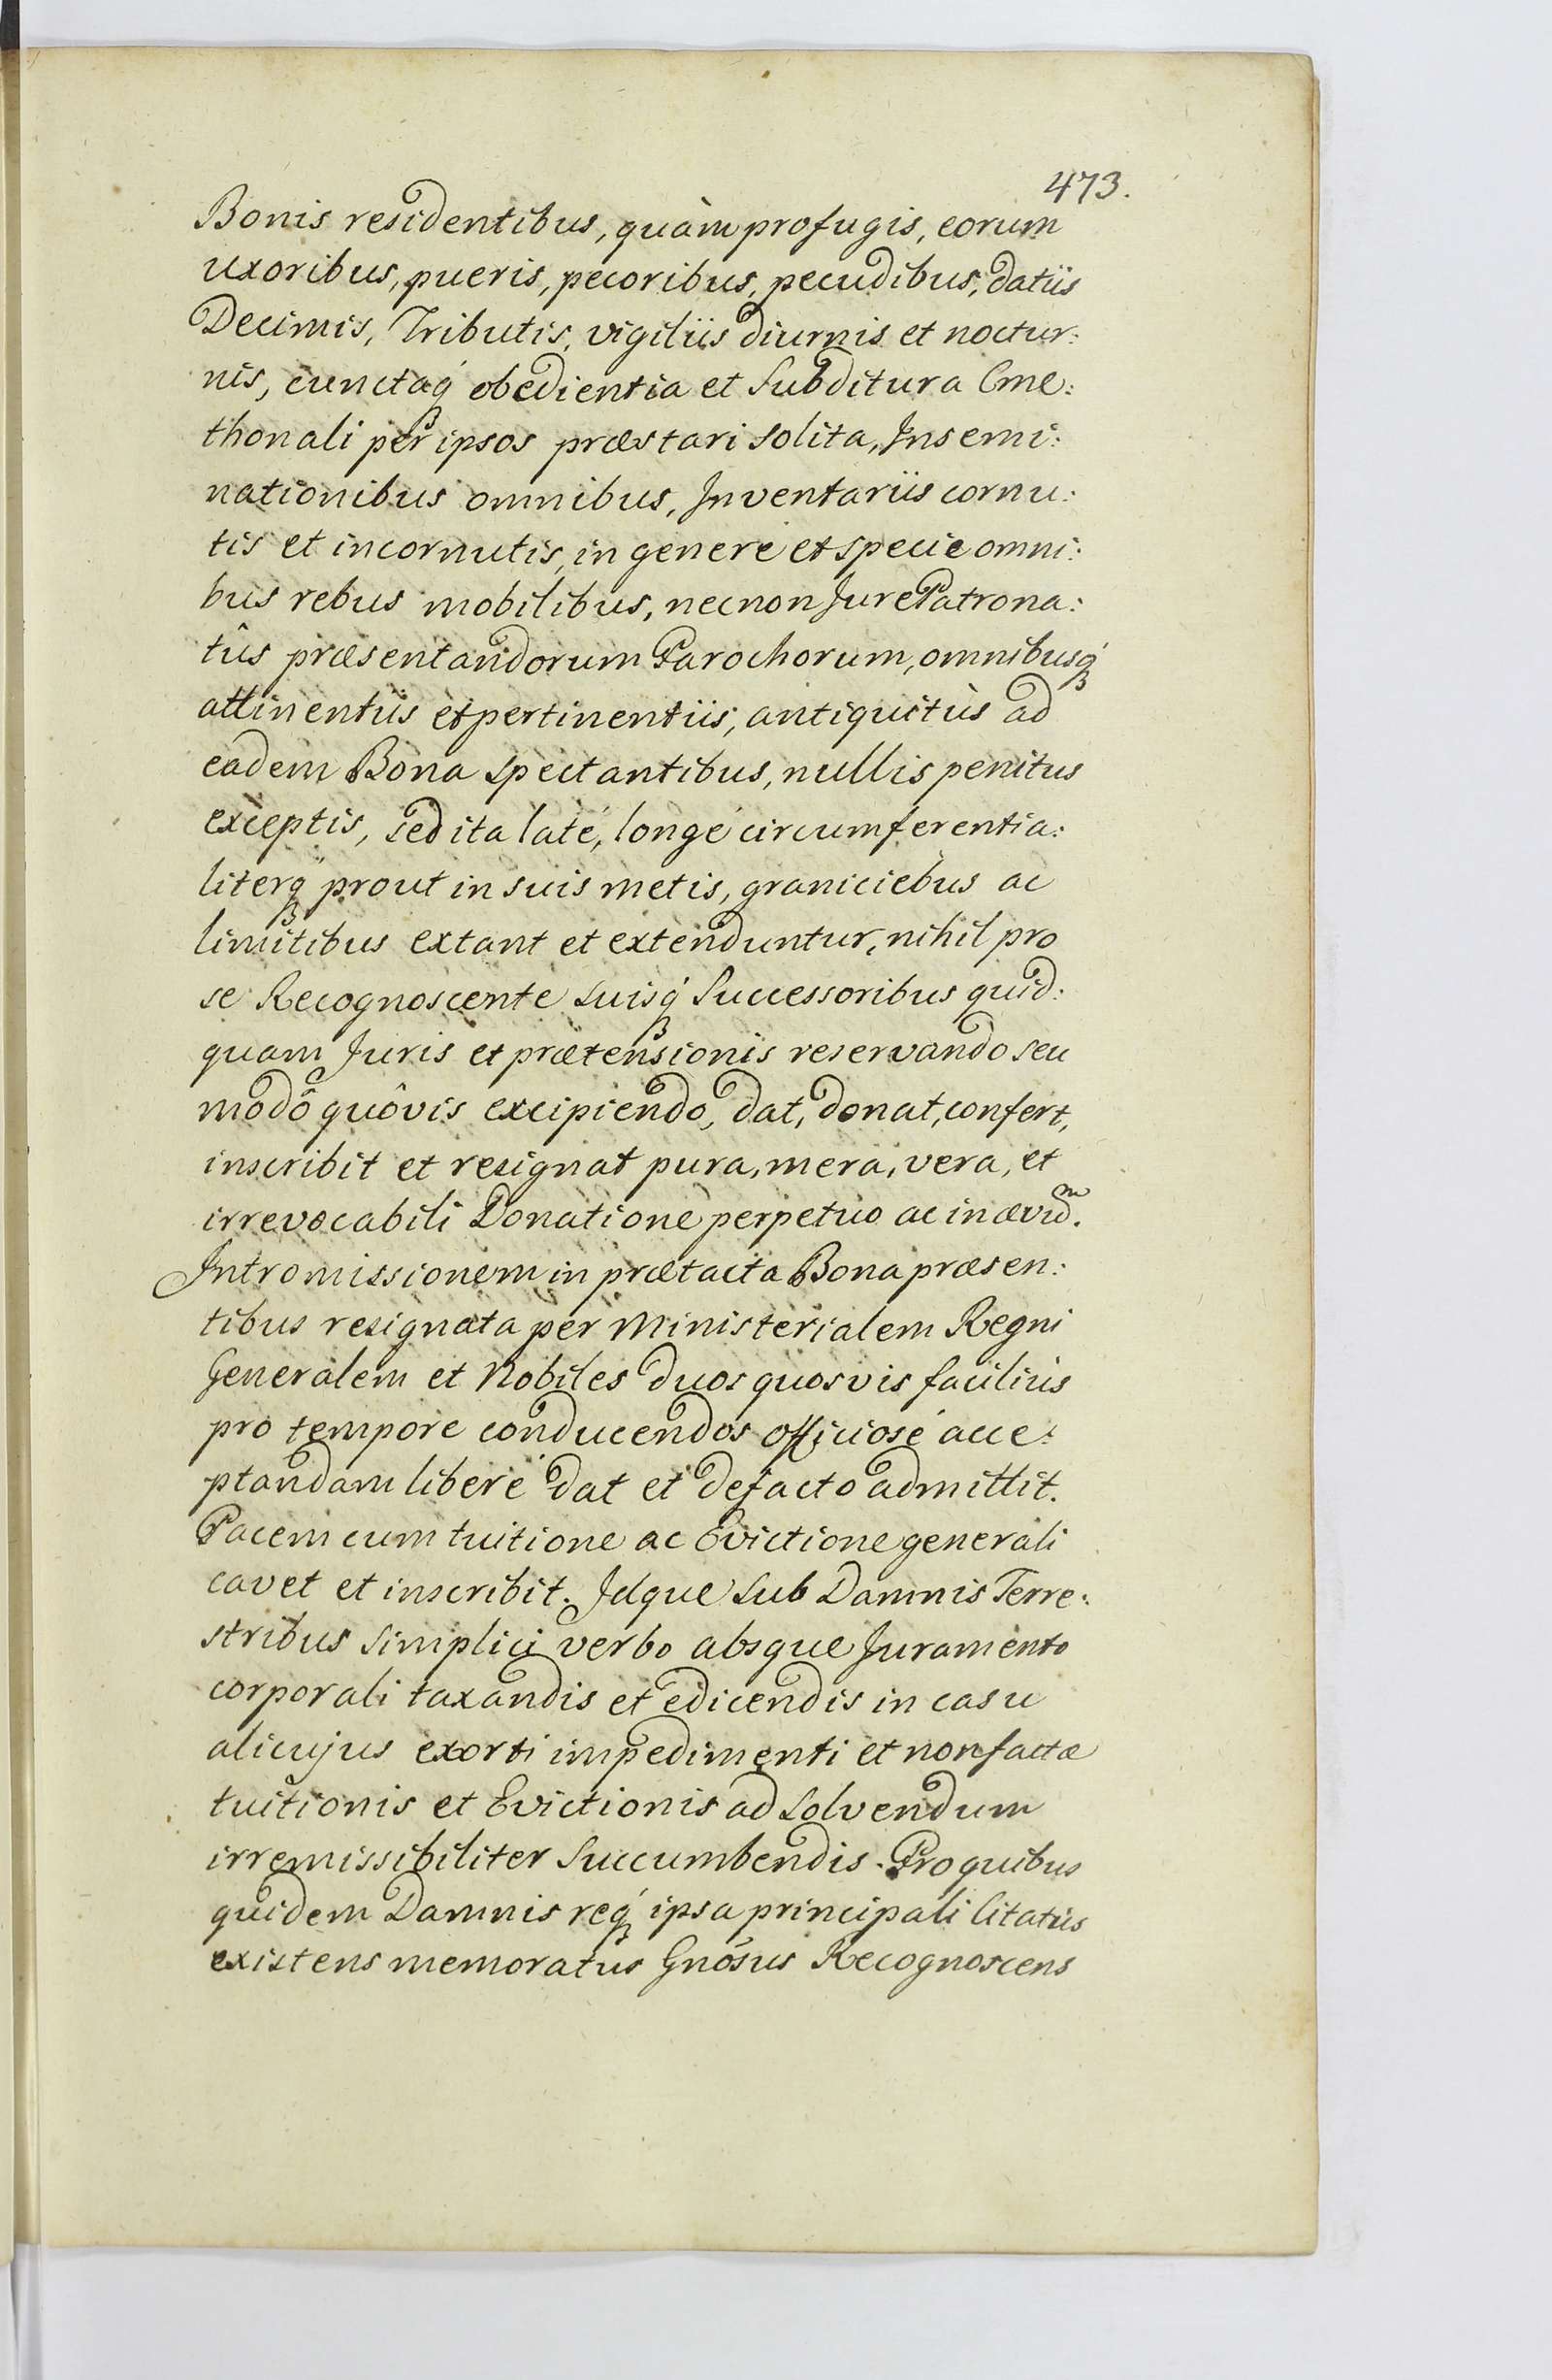 473.
Bonis residentibus, quàm profugis, eorum
uxoribus, pueris, pecoribus, pecudibus, datiis
Decimis, Tributis, vigiliis diurnis et noctur:
nis, cunctaq́ obedientia et Subditura Cme:
thonali per ipsos præstari solita, Insemi:
nationibus omnibus, Inventariis cornu:
tis et incornutis, in genere et specie omni:
bus rebus mobilibus, necnon Jure Patrona:
tûs præsentandorum Parochorum, omnibusq́
attinentiis et pertinentiis, antiquitùs ad
eadem Bona spectantibus, nullis penitus
exceptis, sed ita laté, longé circumferentia:
literq́ prout in suis metis, graniciebus ac
limitibus extant et extenduntur, nihil pro
se Recognoscente suisq́ Successoribus quid:
quam Juris et prætensionis reservando seu
modô quôvis excipiendo, dat, donat, confert,
inscribit et resignat pura, mera, vera, et
irrevocabili Donatione perpetuo ac in ævu͂m.
Intromissionem in prætacta Bona præsen:
tibus resignata per Ministerialem Regni
Generalem et Nobiles duos quosvis faciliùs
pro tempore conducendos officiosé acce:
ptandam liberé dat et defacto admittit.
Pacem cum tuitione ac Evictione generali
cavet et inscribit. Idque sub Damnis Terre:
stribus simplici verbo absque Juramento
corporali taxandis et edicendis in casu
alicujus exorti impedimenti et non factæ
tuitionis et Evictionis ad solvendum
irremissibiliter succumbendis. Pro quibus
quidem Damnis req́ ipsa principali citatus
existens memoratus Gnósus Recognoscens